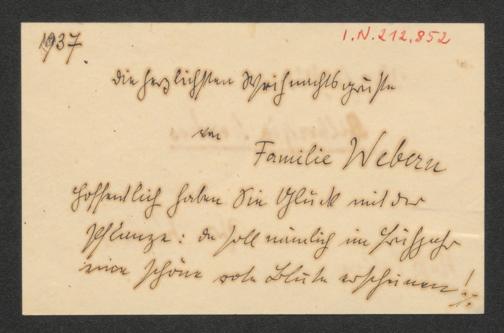 1937.
I.N. 212.852
die herzlichsten Weihnachtsgrüße
von
Familie Webern
Hoffentlich haben Sie Glück mit der
Pflanze: da soll nämlich im Frühjahr
eine schöne rote Blüte erscheinen!